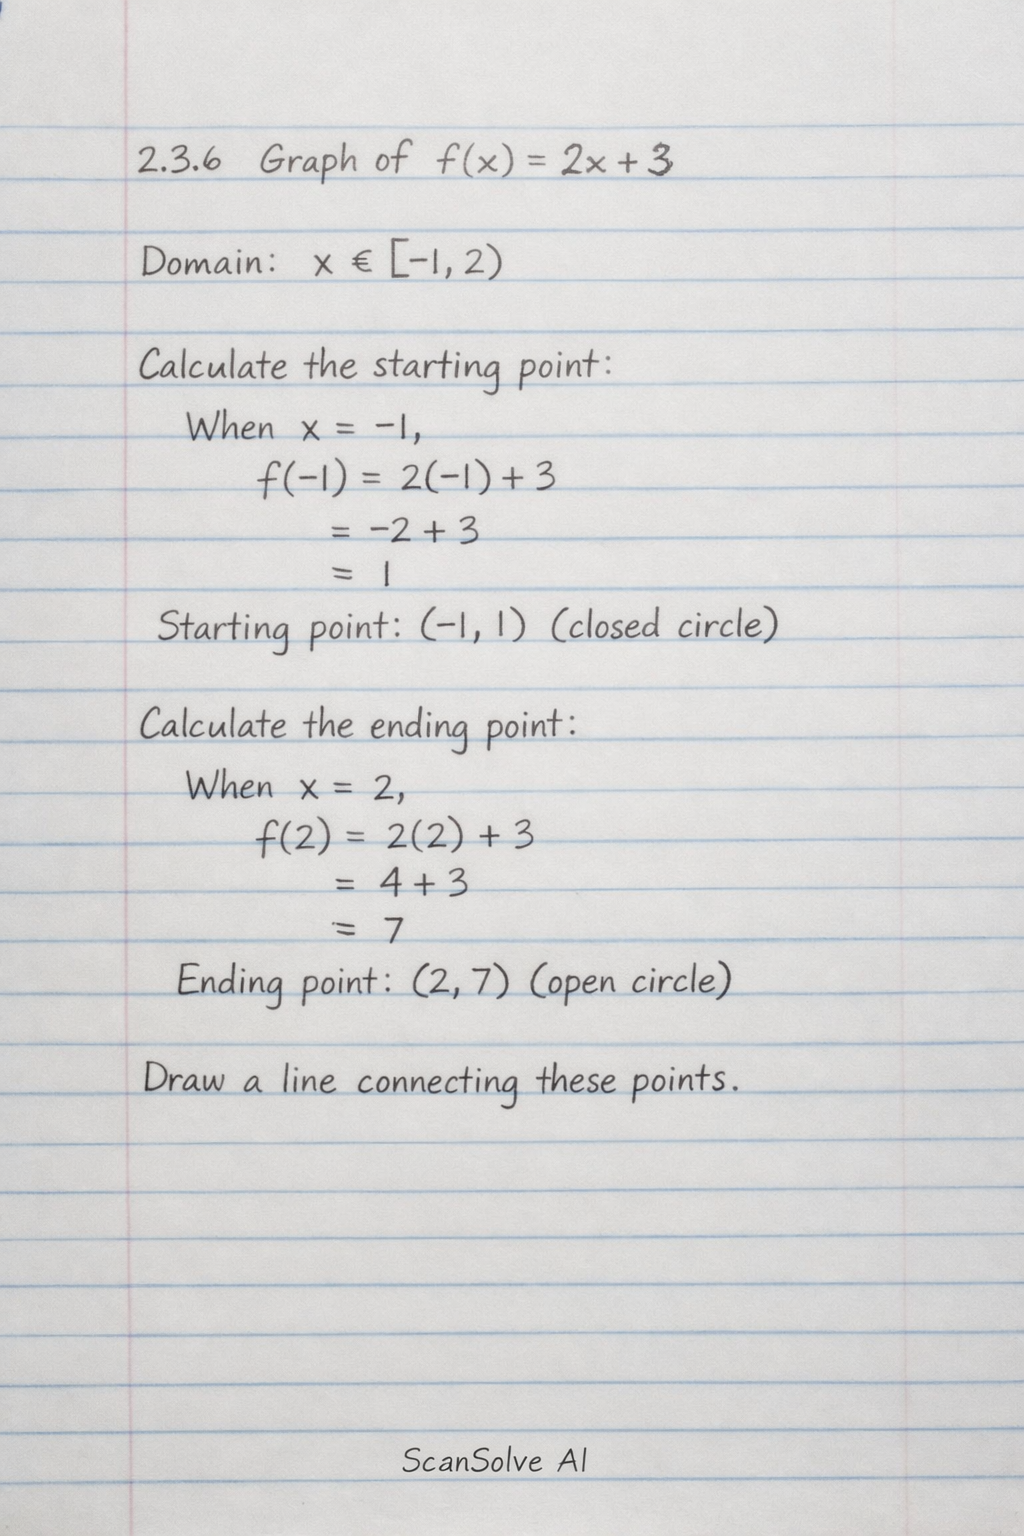 2.3.6 Graph of f(x) = 2x + 3
Domain: x € [-1, 2)
Calculate the starting point:
When x = -1,
f(-1) = 2(-1) + 3
= -2 + 3
= 1
Starting point: (-1, 1) (closed circle)
Calculate the ending point:
When x = 2,
f(2) = 2(2) + 3
= 4 + 3
= 7
Ending point: (2, 7) (open circle)
Draw a line connecting these points.
ScanSolve AI